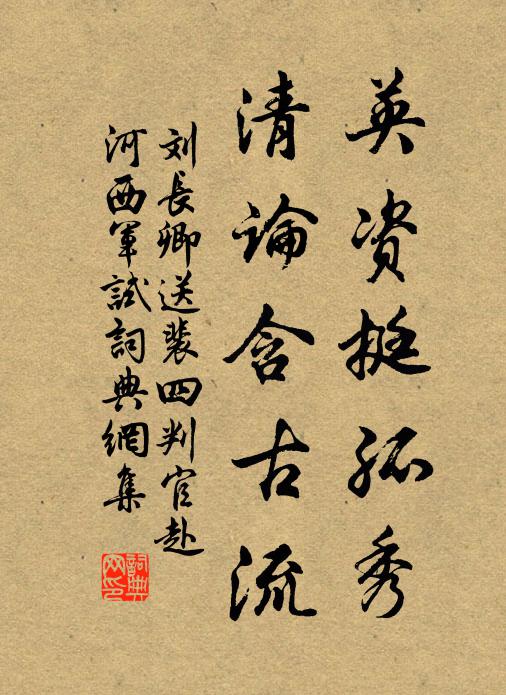 英资挺孤秀
清论含古流
刘長卿送裴四判官赴
河西軍試詞典網集
詞典网印